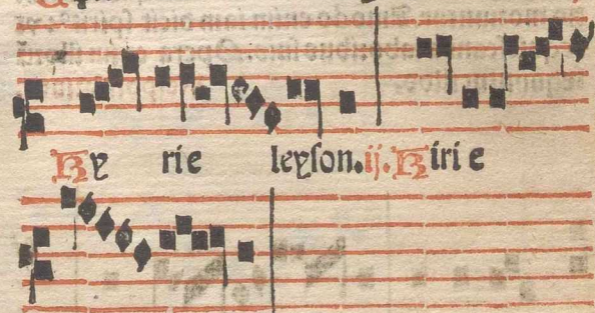 Ky rie leyſon.ij. Kirie